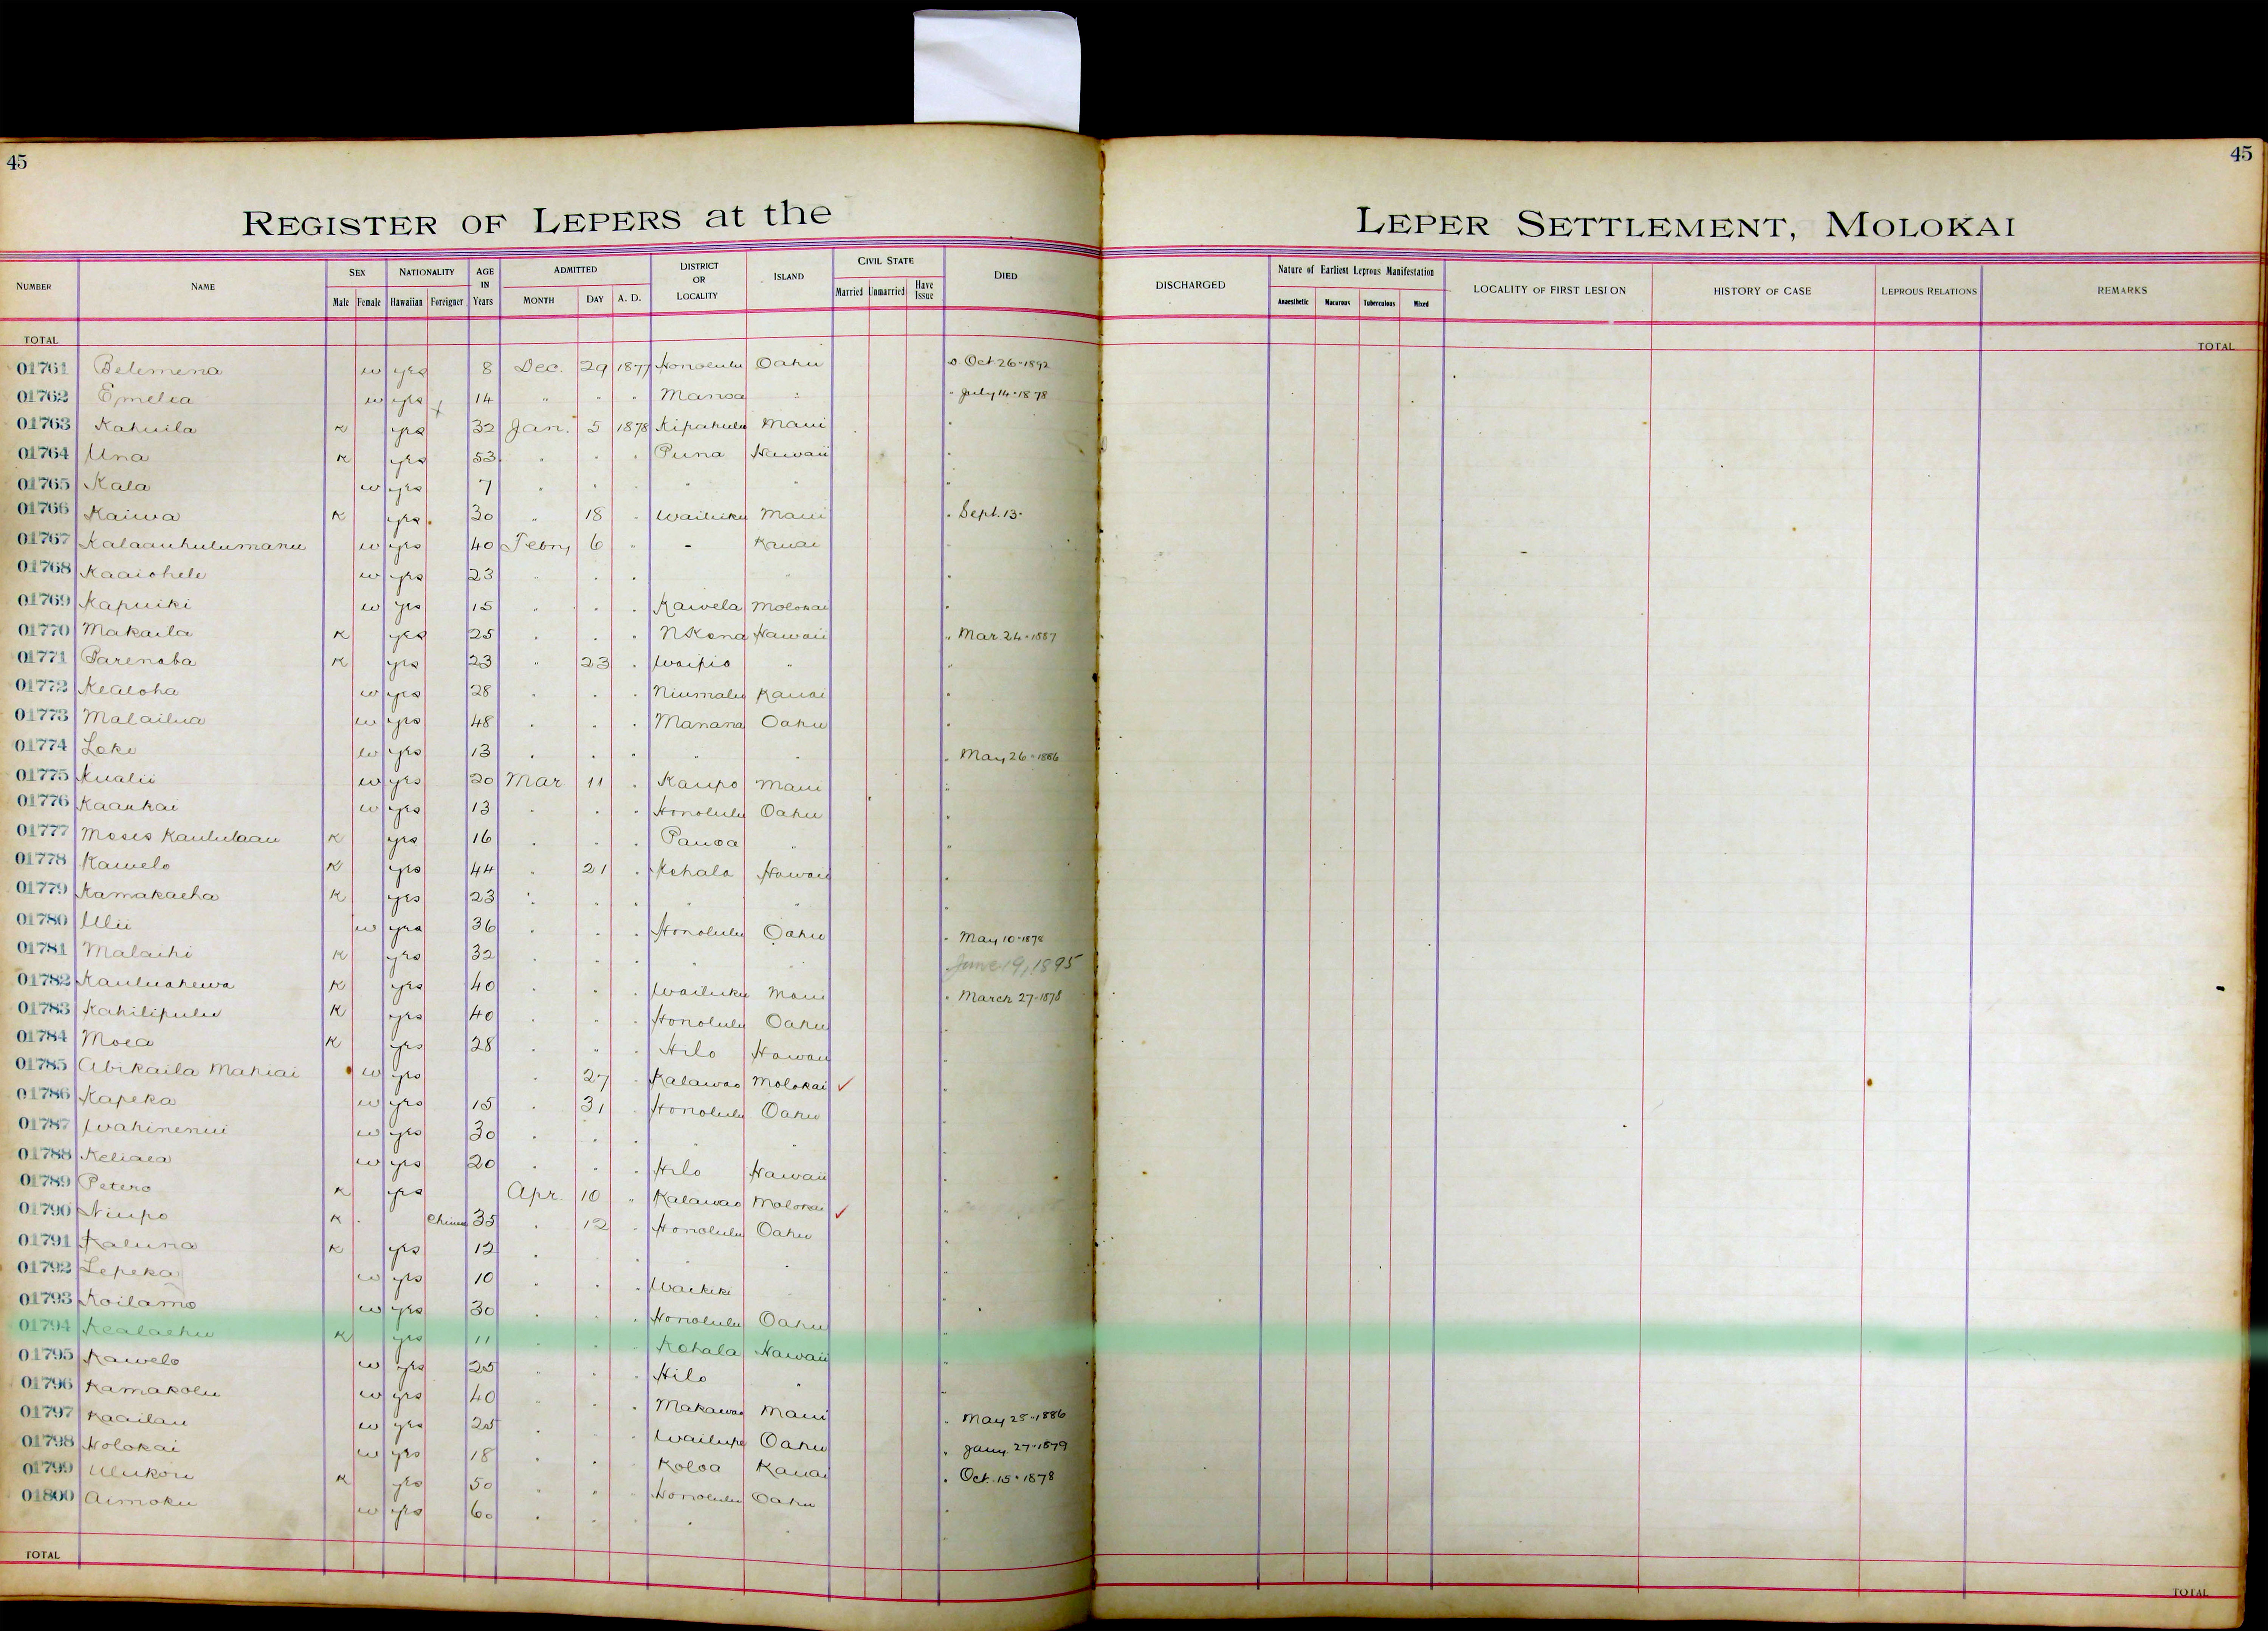 45
45
REGISTER OF LEPERS at the LEPER SETTLEMENT, MOLOKAI
NUMBER NAME SEX NATIONALITY AGE IN Years ADMITTED DISTRICT OR LOCALITY ISLAND CIVIL STATE DIED DISCHARGED Nature of Earliest Leprous Manifestation LOCALITY OF FIRST LESION HISTORY OF CASE LEPROUS RELATIONS REMARKS
Male Female Hawaiian Foreigner MONTH DAY A. D. Married Unmarried Have Issue Anaesthetic Macurous Tuberculous Mixed
TOTAL TOTAL
01761 Belemena w yes 8 Dec. 29 1877 Honolulu Oahu Oct 26-1892
01762 Emelia w yes 14 " " " Manoa " " July 14-1878
01763 Kahuila K yes 32 Jan. 5 1878 Kipahulu Maui
01764 Una K yes 53 " " " Puna Hawaii
01765 Kala w yes 7 " " " " "
01766 Kaiwa K yes 30 " 18 " Wailuku Maui " Sept. 13-
01767 Kalaauhulumanu w yes 40 Febry 6 " - Kauai
01768 Kaaiohele w yes 23 " " " "
01769 Kapuiki w yes 15 " " " Kawela Molokai
01770 Makaila K yes 25 " " " N Kona Hawaii " Mar 24-1887
01771 Parenaba K yes 23 " 23 " Waipio "
01772 Kealoha w yes 28 " " " Niumalu Kauai
01773 Malailua w yes 48 " " " Manana Oahu
01774 Loke w yes 13 " " " " " " May 26-1886
01775 Kualii w yes 20 Mar 11 " Kaupo Maui
01776 Kaaukai w yes 13 " " " Honolulu Oahu
01777 Moses Kaululaau K yes 16 " " " Pauoa "
01778 Kawelo K yes 44 " 21 " Kohala Hawaii
01779 Kamakaeha K yes 23 " " " " "
01780 Ulii w yes 36 " " " Honolulu Oahu " May 10-1878
01781 Malaihi K yes 32 " " " " " June 19, 1895
01782 Kauluahewa K yes 40 " " " Wailuku Maui " March 27-1878
01783 Kahilipulu K yes 40 " " " Honolulu Oahu
01784 Moea K yes 28 " " " Hilo Hawaii
01785 Abikaila Mahiai w yes " 27 " Kalawao Molokai ✓
01786 Kapeka w yes 15 " 31 " Honolulu Oahu
01787 Wahinenui w yes 30 " " " " "
01788 Keliaea w yes 20 " " " Hilo Hawaii
01789 Petero K yes Apr. 10 " Kalawao Molokai ✓
01790 Niupo K Chinese 35 " 12 " Honolulu Oahu
01791 Kaluna K yes 12 " " " " "
01792 Lepeka w yes 10 " " " Waikiki "
01793 Koilamo w yes 30 " " " Honolulu Oahu
01794 Kealaehu K yes 11 " " " Kohala Hawaii
01795 Kawelo w yes 25 " " " Hilo "
01796 Kamakolu w yes 40 " " " Makawao Maui
01797 Kaailau w yes 25 " " " Wailupe Oahu " May 25-1886
01798 Holokai w yes 18 " " " Koloa Kauai " Jany. 27-1879
01799 Ulukou K yes 50 " " " Honolulu Oahu " Oct. 15-1878
01800 Aimoku w yes 60 " " " " "
TOTAL TOTAL